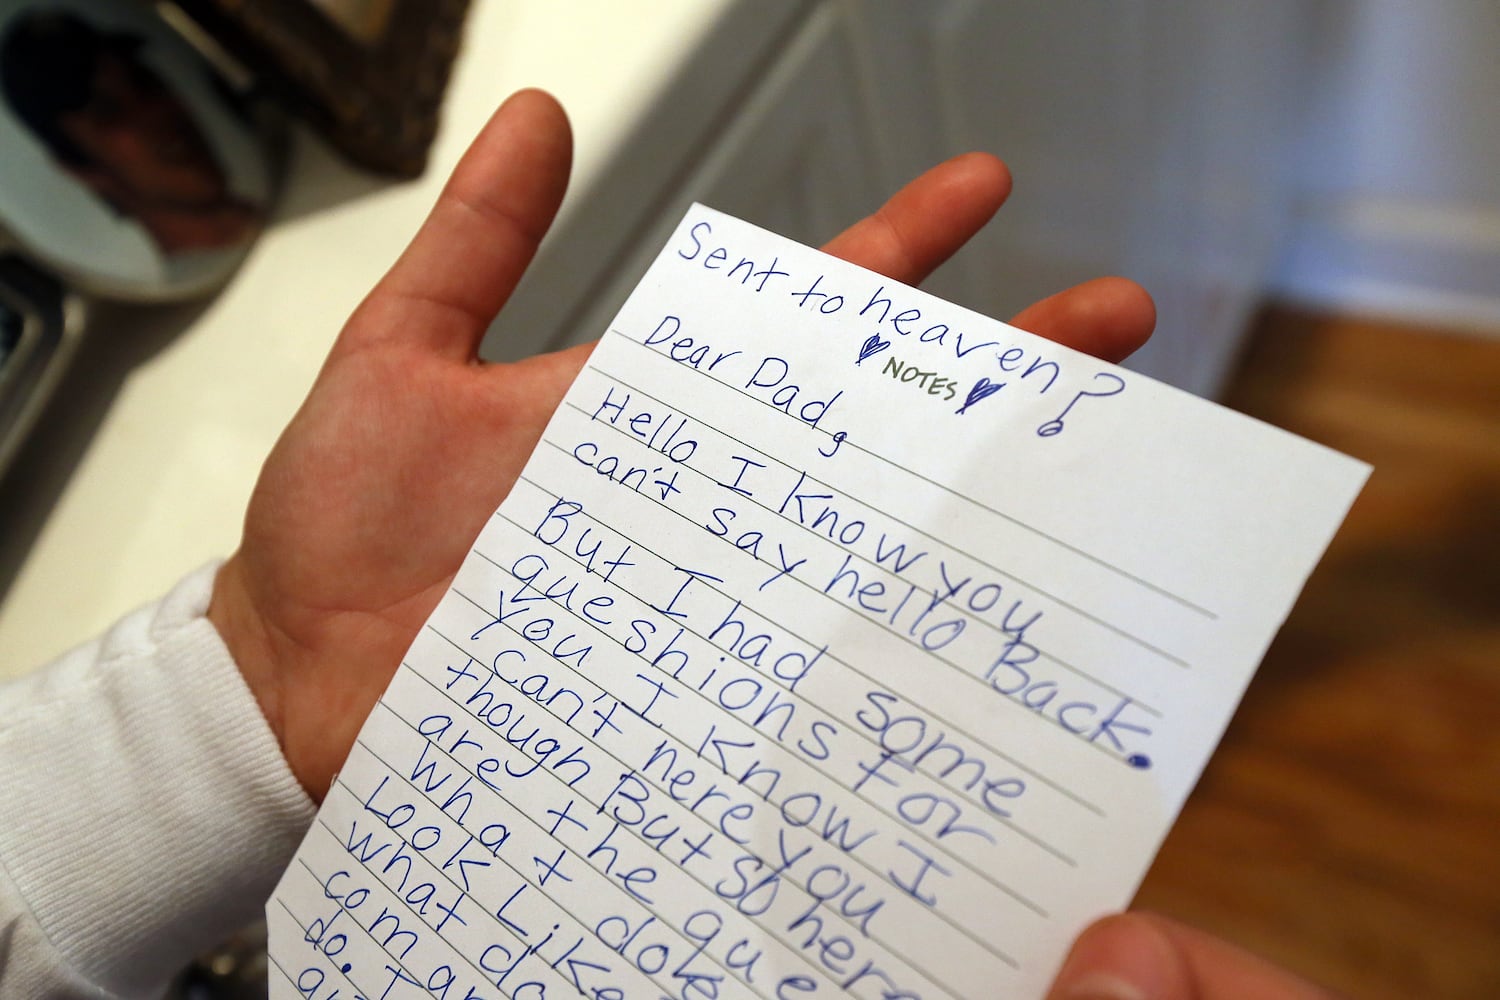 Sent to heaven?
NOTES
Dear Dad,
Hello I Know you
can't say hello Back.
But I had some
queshions for
You I Know I
can't here you
though But so here
are the que
What do
Look Like
what
com
do. I